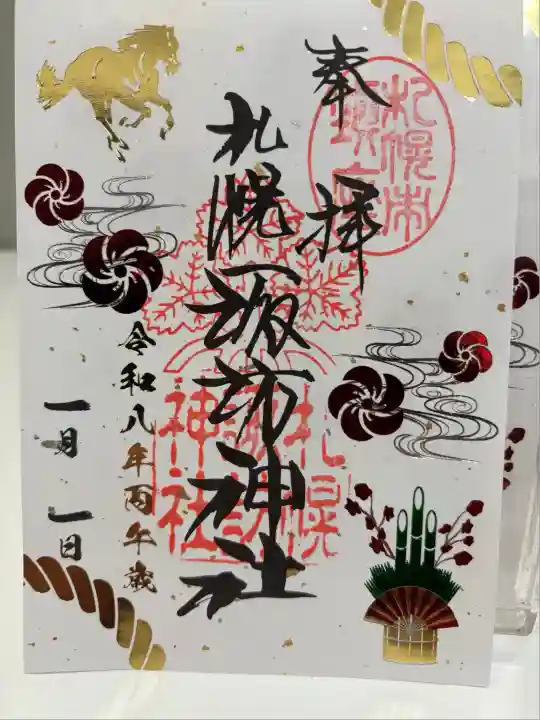 札幌市
奉拝
札幌諏訪神社
札幌諏訪神社
令和八年丙午歳
一月一日